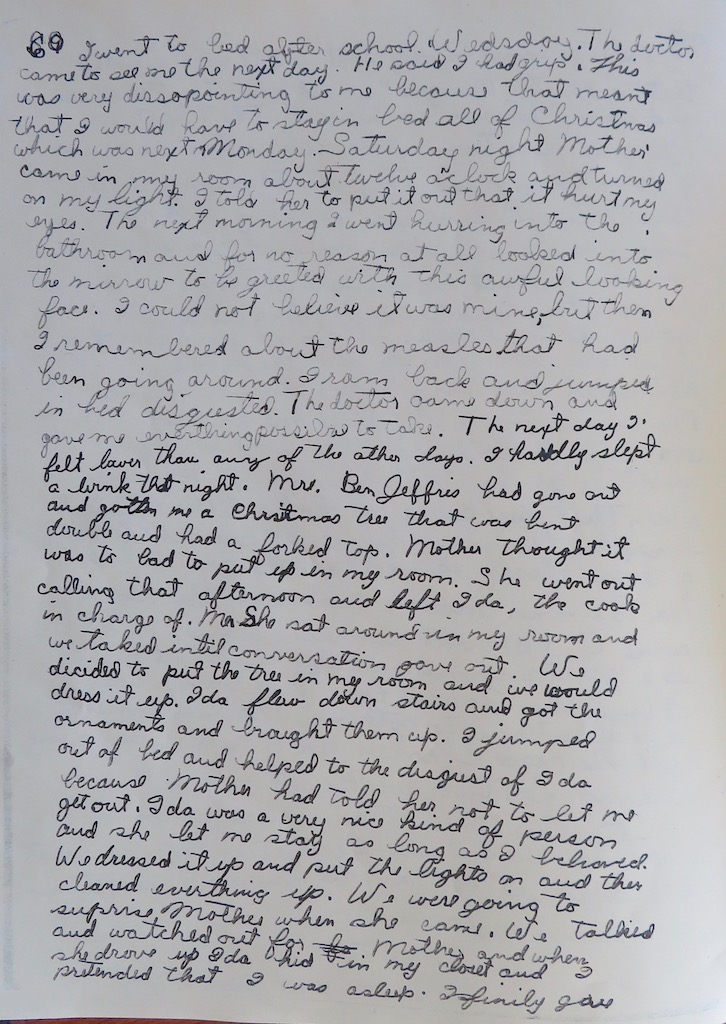 69 I went to bed after school. Wedsday. The doctor
came to see me the next day. He said I had grip. This
was very dissopointing to me because that meant
that I would have to stay in bed all of Christmas
which was next Monday. Saturday night Mother
came in my room about twelve o'clock and turned
on my light. I told her to put it out that it hurt my
eyes. The next morning I went hurring into the
bathroom and for no reason at all looked into
the mirrow to be greeted with this awful looking
face. I could not believe it was mine, but then
I remembered about the measles that had
been going around. I ran back and jumped
in bed disgusted. The doctor came down and
gave me everthing possilbe to take. The next day I
felt lower than any of the other days. I hardly slept
a wink that night. Mrs. Ben Jeffris had gone out
and gotten me a Christmas tree that was bent
double and had a forked top. Mother thought it
was to bad to put up in my room. She went out
calling that afternoon and left Ida, the cook
in charge of. Me She sat around in my room and
we talked until conversation gave out. We
decided to put the tree in my room and we would
dress it up. Ida flew down stairs and got the
ornaments and brought them up. I jumped
out of bed and helped to the disgust of Ida
because Mother had told her not to let me
get out. Ida was a very nice kind of person
and she let me stay as long as I behaved.
We dressed it up and put the lights on and then
cleaned everthing up. We were going to
suprise Mother when she came. We talked
and watched out for Mother and when
she drove up Ida hid in my closet and I
pretended that I was asleep. I finily gave